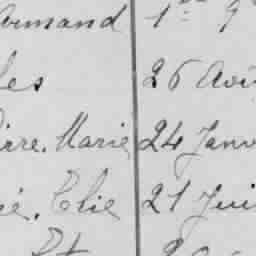 Armand 1er
les 26 Aoû
ierre. Marie 24 Janv
ie. Elie 21 Jui